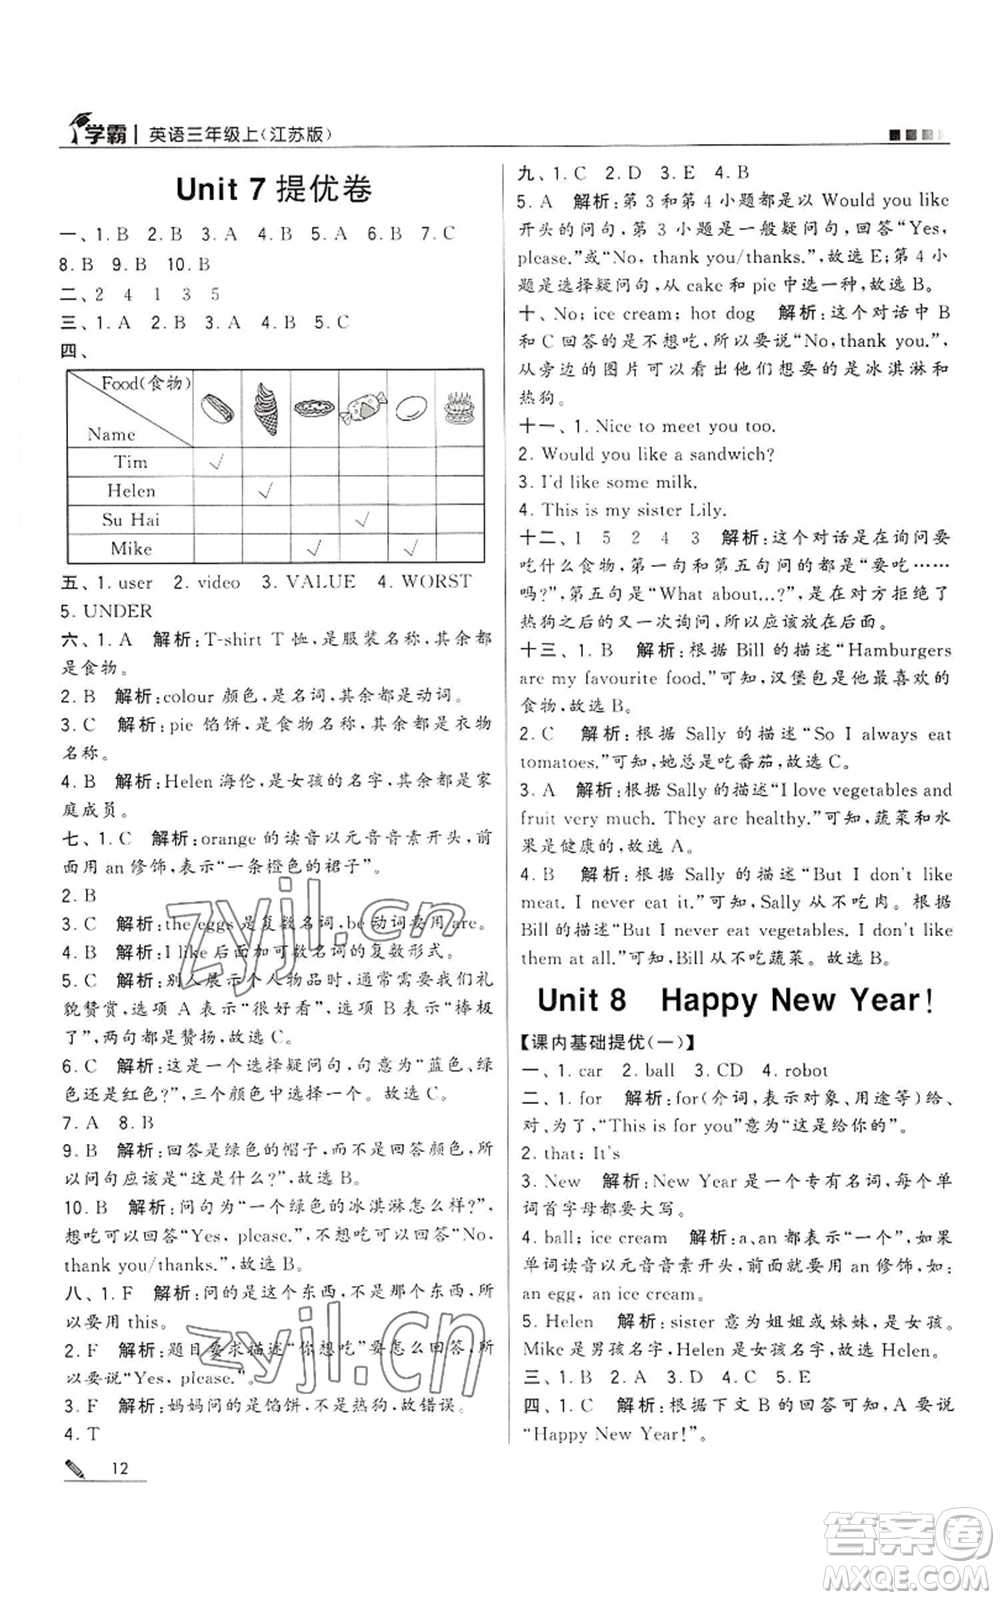 学霸 | 英语三年级上(江苏版)
Unit 7 提优卷
一、1. B 2. B 3. A 4. B 5. A 6. B 7. C
8. B 9. B 10. B
二、2 4 1 3 5
三、1. A 2. B 3. A 4. B 5. C
四、
Food(食物)
Name
Tim √
Helen √
Su Hai √
Mike √ √
五、1. user 2. video 3. VALUE 4. WORST
5. UNDER
六、1. A 解析:T-shirt T 恤,是服装名称,其余都
是食物。
2. B 解析:colour 颜色,是名词,其余都是动词。
3. C 解析:pie 馅饼,是食物名称,其余都是衣物
名称。
4. B 解析:Helen 海伦,是女孩的名字,其余都是家
庭成员。
七、1. C 解析:orange 的读音以元音音素开头,前
面用 an 修饰,表示“一条橙色的裙子”。
2. B
3. C 解析:the eggs 是复数名词,be 动词要用 are。
4. B 解析:I like 后面加可数名词的复数形式。
5. C 解析:别人展示个人物品时,通常需要我们礼
貌赞赏,选项 A 表示“很好看”,选项 B 表示“棒极
了”,两句都是赞扬,故选 C。
6. C 解析:这是一个选择疑问句,“它是蓝色、绿
色还是红色?”选项 C 表示“它是红色”。故选 C。
7. A 8. B
9. B 解析:回答是绿色的帽子,而不是回答颜色,所
以问句应该是“这是什么?”,故选 B。
10. B 解析:问句为“一个绿色的冰淇淋怎么样?”,
想吃可以回答“Yes, please.”,不想吃可以回答“No,
thank you/thanks.”,故选 B。
八、1. F 解析:问的是这个东西,不是那个东西,所
以要用 this。
2. F 解析:题目要求描述“你想吃”怎么回答,所
以要说“Yes, please.”。
3. F 解析:妈妈问的是馅饼,不是热狗,故错误。
4. T
九、1. C 2. D 3. E 4. B
5. A 解析:第 3 和第 4 小题都是以 Would you like
开头的问句,第 3 小题是一般疑问句,回答“Yes,
please.”或“No, thank you/thanks.”,故选 E;第 4 小
题是选择疑问句,从 cake 和 pie 中选一种,故选 B。
十、No; ice cream; hot dog 解析:这个对话中 B
和 C 回答的是不想吃,所以要说“No, thank you.”,
从旁边的图片可以看出他们想要的是冰淇淋和
热狗。
十一、1. Nice to meet you too.
2. Would you like a sandwich?
3. I'd like some milk.
4. This is my sister Lily.
十二、1 5 2 4 3 解析:这个对话是在询问要
吃什么食物,第一句和第五句问的都是“要吃……
吗?”,第五句是“What about...?”,是在对方拒绝了
热狗之后的又一次询问,所以应该放在后面。
十三、1. B 解析:根据 Bill 的描述“Hamburgers
are my favourite food.”可知,汉堡包是他最喜欢的
食物,故选 B。
2. C 解析:根据 Sally 的描述“So I always eat
tomatoes.”可知,她总是吃番茄,故选 C。
3. A 解析:根据 Sally 的描述“I love vegetables and
fruit very much. They are healthy.”可知,蔬菜和水
果是健康的,故选 A。
4. B 解析:根据 Sally 的描述“But I don't like
meat. I never eat it.”可知,Sally 从不吃肉。根据
Bill 的描述“But I never eat vegetables. I don't like
them at all.”可知,Bill 从不吃蔬菜。故选 B。
Unit 8 Happy New Year!
【课内基础提优(一)】
一、1. car 2. ball 3. CD 4. robot
二、1. for 解析:for(介词,表示对象、用途等)给、
对、为了,“This is for you”意为“这是给你的”。
2. that; It's
3. New 解析:New Year 是一个专有名词,每个单
词首字母都要大写。
4. ball; ice cream 解析:a、an 都表示“一个”,如果
单词读音以元音音素开头,要用 an 修饰,如:
an egg, an ice cream。
5. Helen 解析:sister 意为姐姐或妹妹,是女孩。
Mike 是男孩名字,Helen 是女孩名字,故选 Helen。
三、1. B 2. D 3. A 4. C 5. E
四、1. C 解析:根据下文 B 的回答可知,A 要说
“Happy New Year!”。
12
zyjl.cn
zyjl.cn
答案圈
MXQE.COM